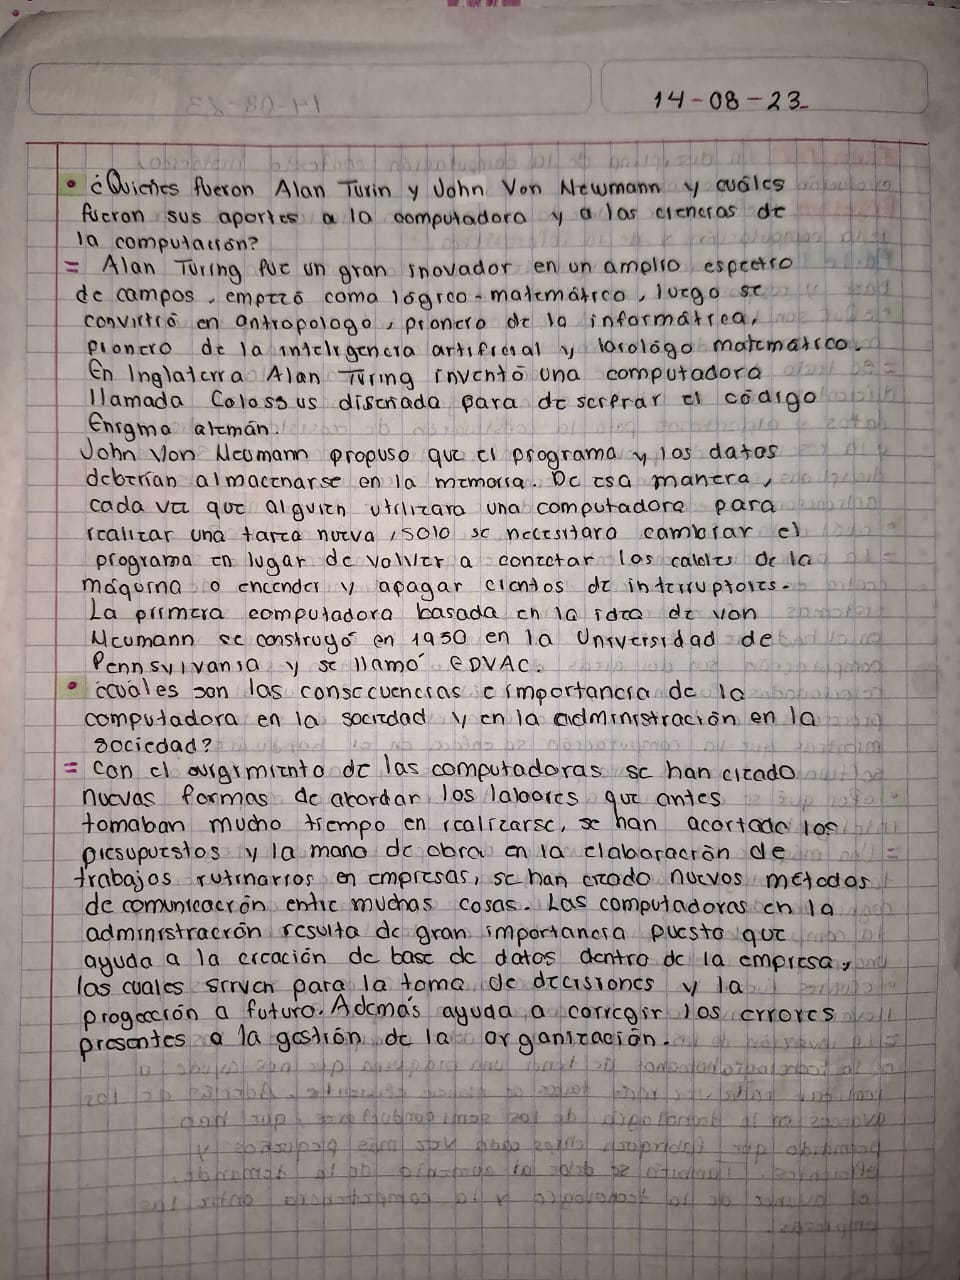 14-08-23
• ¿Quienes fueron Alan Turin y John Von Newmann y cuáles
fueron sus aportes a la computadora y a las ciencias de
la computación?
= Alan Turing fue un gran inovador en un amplio espectro
de campos, empezó como lógico-matemático, luego se
convirtió en antropologo, pionero de la informática,
pionero de la inteligencia artificial y matemático.
En Inglaterra Alan Turing inventó una computadora
llamada Colossus diseñada para descifrar el código
Enigma alemán.
John Von Neumann propuso que el programa y los datos
deberían almacenarse en la memoria. De esa manera,
cada vez que alguien utilizara una computadora para
realizar una tarea nueva, solo se necesitara cambiar el
programa en lugar de volver a conectar los cables de la
máquina o encender y apagar cientos de interruptores.
La primera computadora basada en la idea de von
Neumann se construyó en 1950 en la Universidad de
Pennsylvania y se llamó EDVAC.
• ¿cuáles son las consecuencias e importancia de la
computadora en la sociedad y en la administración en la
sociedad?
= Con el surgimiento de las computadoras se han creado
nuevas formas de abordar los labores que antes
tomaban mucho tiempo en realizarse, se han acortado los
presupuestos y la mano de obra en la elaboración de
trabajos rutinarios en empresas, se han creado nuevos métodos
de comunicación entre muchas cosas. Las computadoras en la
administración resulta de gran importancia puesto que
ayuda a la creación de base de datos dentro de la empresa,
las cuales sirven para la toma de decisiones y la
progección a futuro. Además ayuda a corregir los errores
presentes a la gestión de la organización.